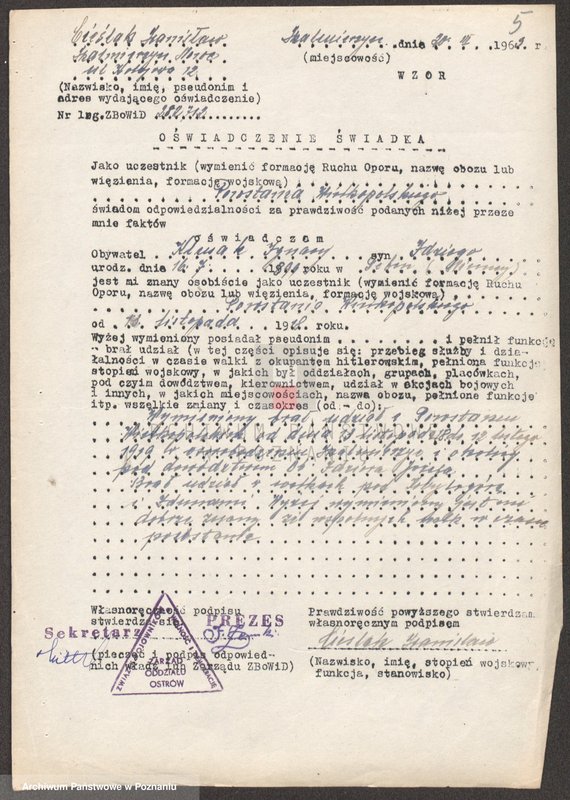 5
Cieślak Stanisław
Skalmierzyce dnia 20 III 1969 r.
Skalmierzyce Nowe (miejscowość)
ul Kolejowa 12 WZÓR
(Nazwisko, imię, pseudonim i
adres wydającego oświadczenie)
Nr leg.ZBoWiD 282712
OŚWIADCZENIE ŚWIADKA
Jako uczestnik (wymienić formację Ruchu Oporu, nazwę obozu lub
więzienia, formację wojskową)
Powstania Wielkopolskiego
świadom odpowiedzialności za prawdziwość podanych niżej przeze
mnie faktów
oświadczam
Obywatel Ignacy syn Idziego
urodz. dnia 16.7. 1890 roku w
jest mi znany osobiście jako uczestnik (wymienić formację Ruchu
Oporu, nazwę obozu lub więzienia, formację wojskową)
Powstania Wielkopolskiego
od listopada 1918 roku.
Wyżej wymieniony posiadał pseudonim i pełnił funkcję
- brał udział (w tej części opisuje się: przebieg służby i dzia-
łalności w czasie walki z okupantem hitlerowskim, pełnione funkcje
stopień wojskowy, w jakich był oddziałach, grupach, placówkach,
pod czyim dowództwem, kierownictwem, udział w akcjach bojowych
i innych, w jakich miejscowościach, nazwa obozu, pełnione funkcje
itp. wszelkie zmiany i czasokres (od - do):
Wymieniony brał udział w Powstaniu
Wielkopolskim od dnia listopada do lutego
1919 r. i okolicy
pod dowództwem
Brał udział w walkach pod
i Zdunami Wyżej wymieniony jest mi
dobrze znany z wspólnych walk w czasie
powstania
Własnoręczność podpisu
stwierdza się
Prawdziwość powyższego stwierdzam
własnoręcznym podpisem
Sekretarz PREZES
Cieślak Stanisław
(pieczęć i podpis odpowied-
nich władz lub Zarządu ZBoWiD)
(Nazwisko, imię, stopień wojskowy
funkcja, stanowisko)
ZWIĄZEK BOJOWNIKÓW O WOLNOŚĆ I DEMOKRACJĘ
ZARZĄD
ODDZIAŁU
OSTRÓW
Archiwum Państwowe w Poznaniu